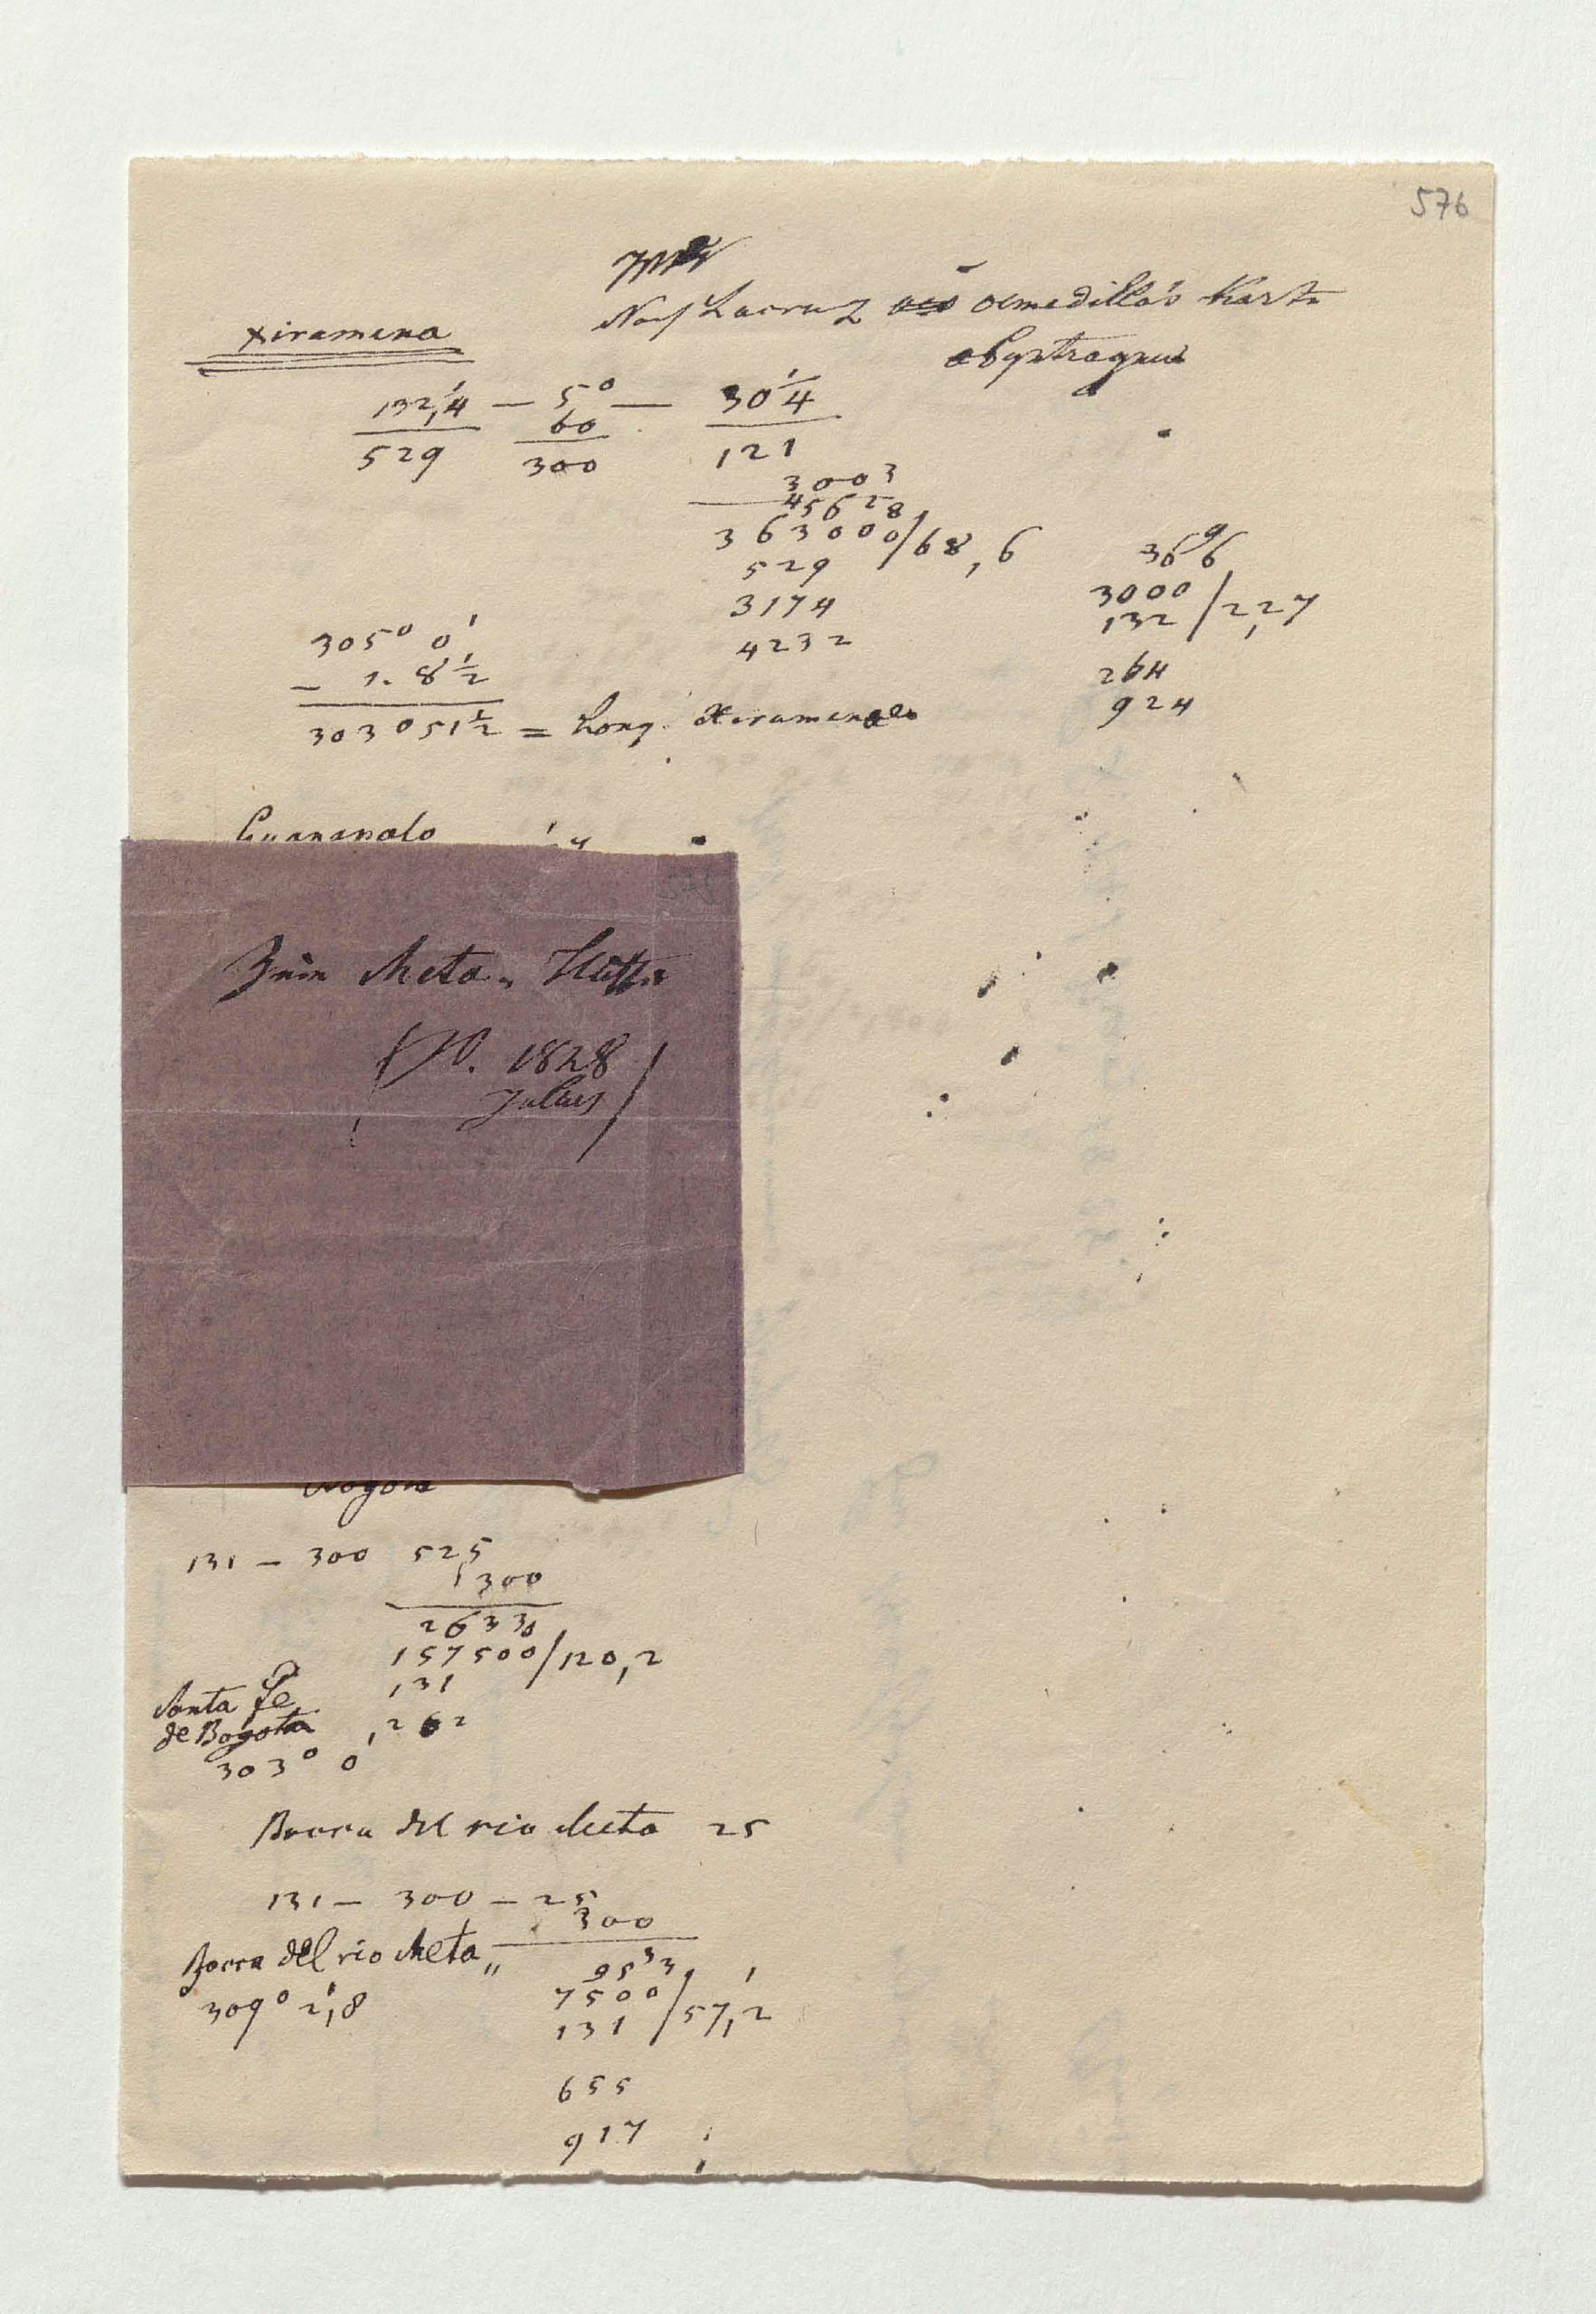 576
Nach Lacruz Olmedilla's Karte
abgetragen
Xiramena
132,1/4 — 5° — 30 1/4
60
529 300 121
3003
45628
363000/68,6
529
3174
4232
3696
3000/2,27
132
264
924
305° 0'
— 1. 8 1/2
303° 51 1/2 = Long. Xiramena
Guanapalo
Zum Meta-Fluss
1828
Julius
Bogota
131 — 300 52,5
300
26330
157500/120,2
131
,262
Santa Fe
de Bogota
303° 0'
Bocca del rio Meta 25
131 — 300 — 25
300
Bocca del rio Meta
309° 2,'8
9533
7500/57,2
131
655
917